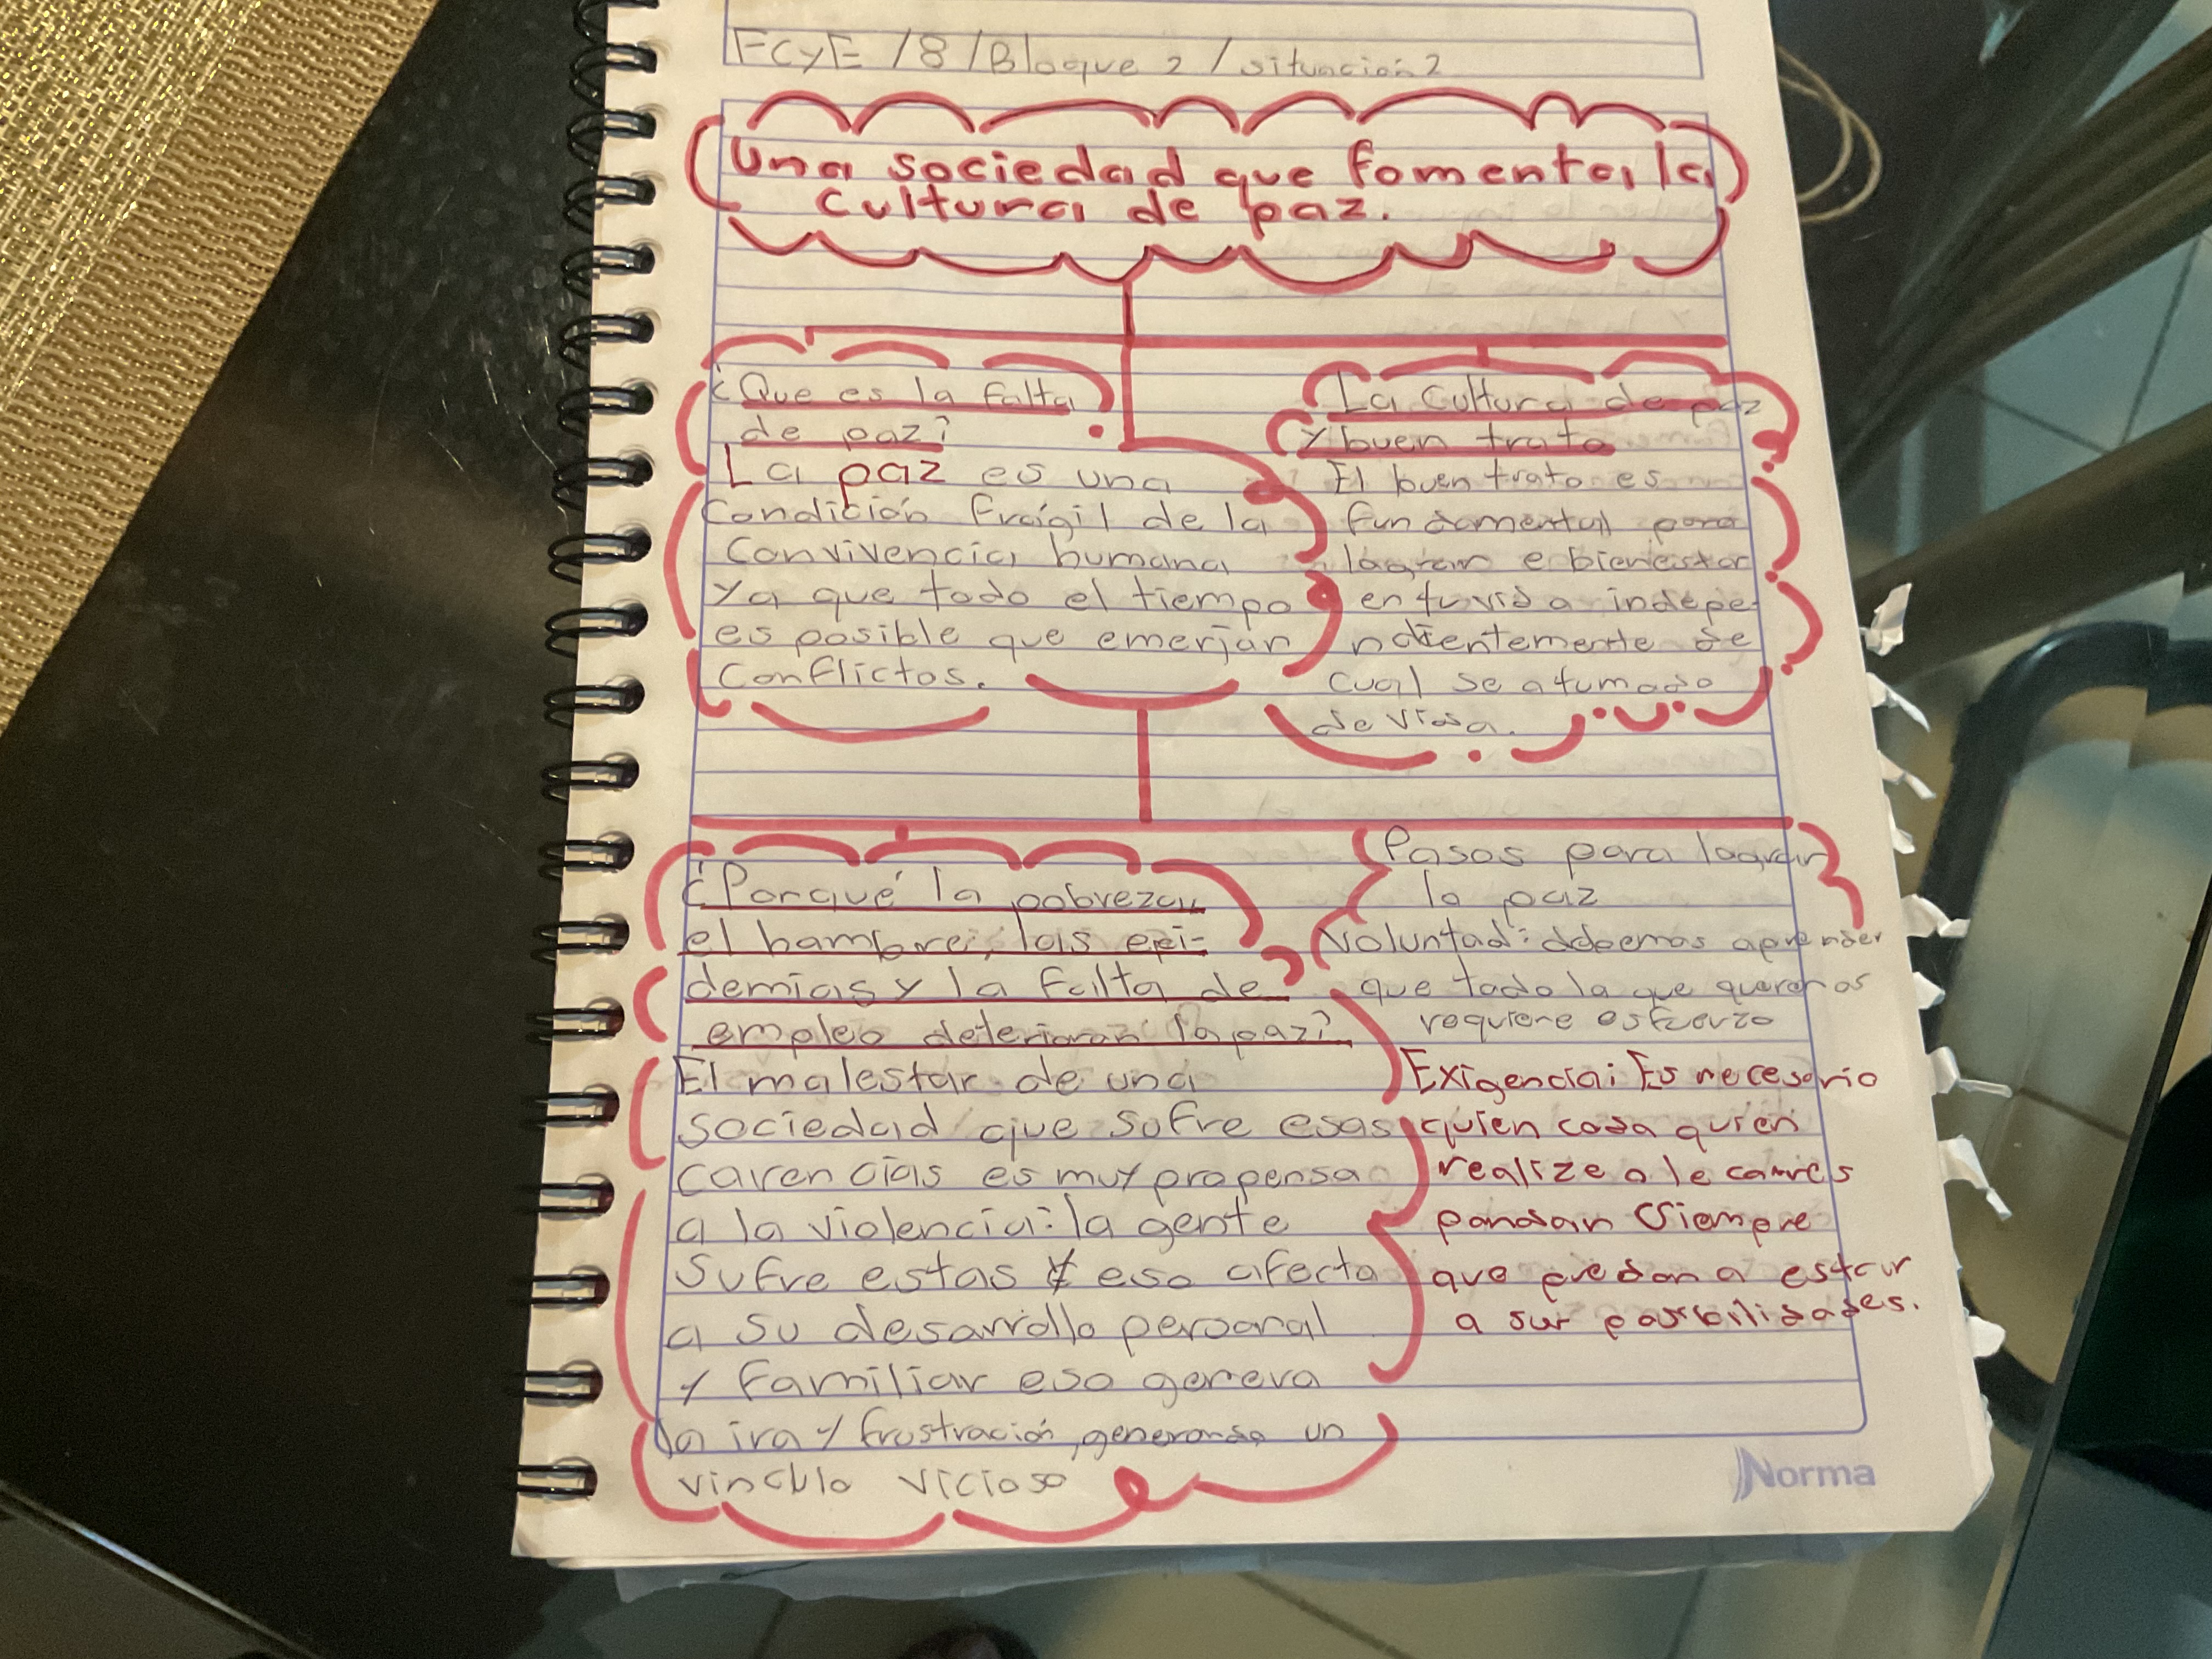 FCyE /8 /Bloque 2 / situación 2
Una sociedad que fomenta la
cultura de paz.
¿Que es la falta
de paz?
La paz es una
condición fragíl de la
convivencia humana
ya que todo el tiempo
es posible que emerjan
conflictos.
La cultura de paz
y buen trato
El buen trato es
fundamental para
lograr e bienestar
en tu vida indepe-
ndientemente de
cual se a tu mado
de vida.
¿Porqué la pobreza,
el hambre, las epi-
demias y la falta de
empleo deterioran la paz?
El malestar de una
sociedad que sufre esas
carencias es muy propensa
a la violencia: la gente
sufre estas y eso afecta
a su desarrollo personal
y familiar eso genera
la ira y frustración, generando un
vinculo vicioso
Pasos para lograr
la paz
Voluntad: debemos aprender
que todo la que queremos
requiere esfuerzo
Exigencia: Es necesario
quien cada quien
realize a le corres
pondan siempre
que puedan a estar
a sus posibilidades.
Norma